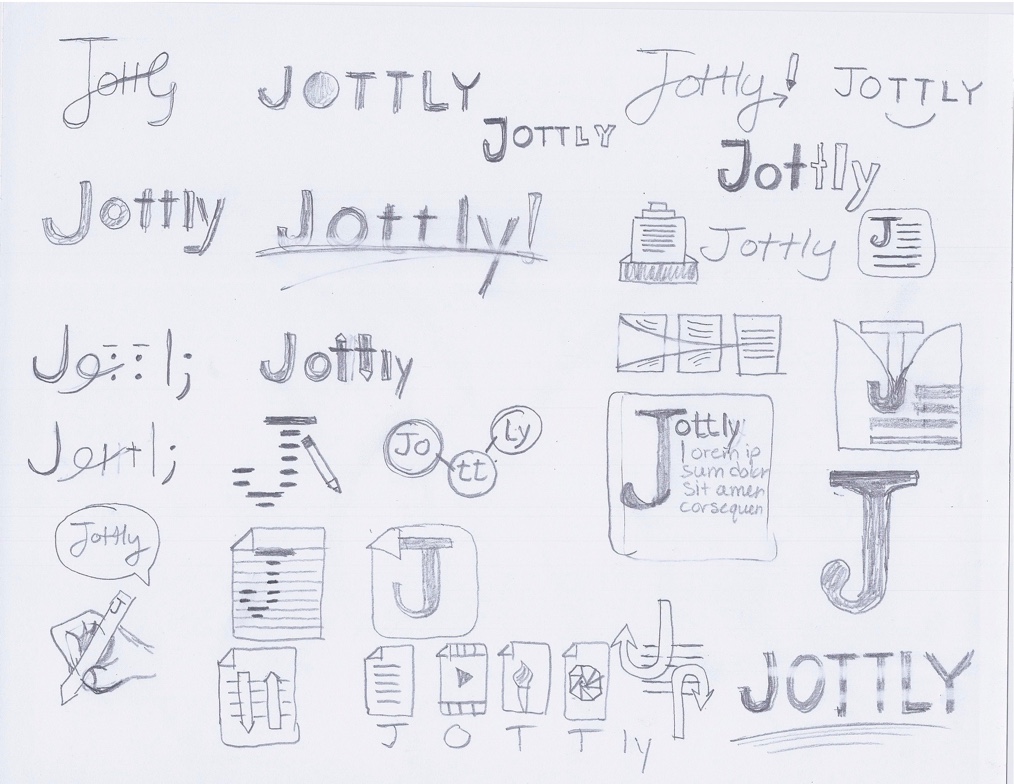 Jottly
JOTTLY
Jottly
JOTTLY
JOTTLY
Jottly
Jottly
Jottly!
Jottly
J
J
Jottly
J
Jo
tt
Ly
Jottly
lorem ip
sum dolor
Sit amer
corsequen
J
Jottly
J
J
J O T T ly
JOTTLY